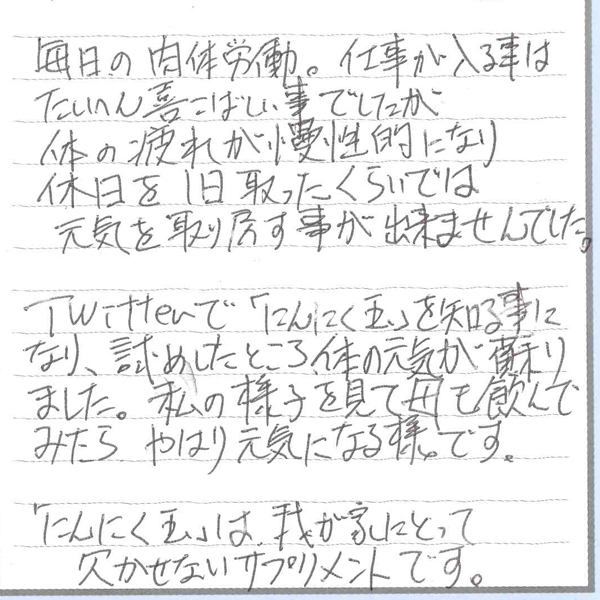 毎日の肉体労働。仕事が入る事は
たいへん喜こばしい事でしたが
体の疲れが慢性的になり
休日を1日取ったくらいでは
元気を取り戻す事が出来ませんでした。
Twitterで「にんにく玉」を知る事に
なり、試めしたところ体の元気が蘇り
ました。私の様子を見て母も飲んで
みたら やはり元気になる様です。
「にんにく玉」は、我が家にとって
欠かせないサプリメントです。